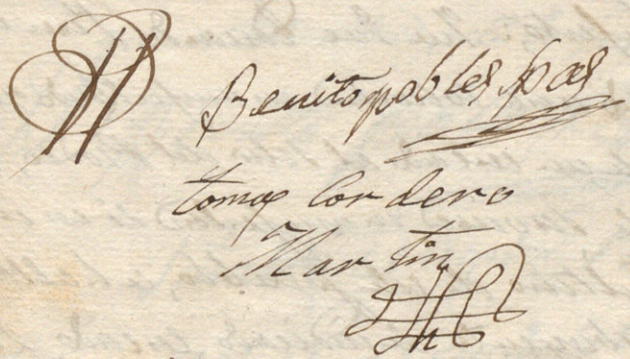 Benito pobles
tomas Cordero
Martin